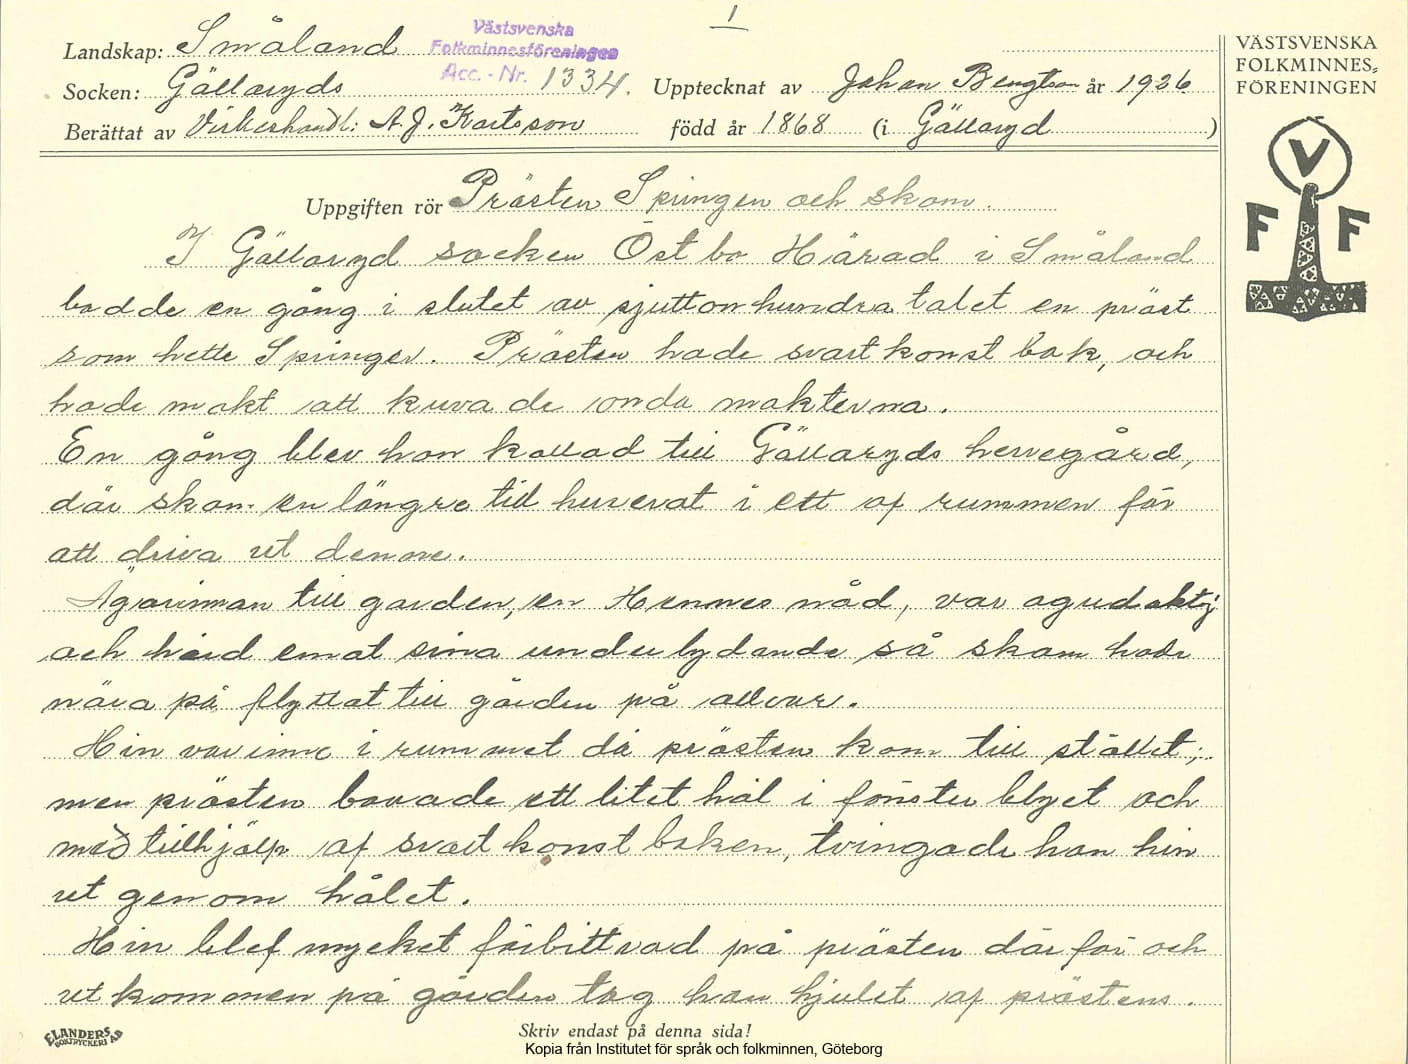 1
Landskap: Småland
Västsvenska
Folkminnesföreningen
Acc.-Nr. 1334.
Socken: Gällaryds
Upptecknat av Johan Bengtson år 1926
Berättat av Virkeshandl: A. J. Karlsson
född år 1868 (i Gällaryd )
VÄSTSVENSKA
FOLKMINNES-
FÖRENINGEN
V
F F
Uppgiften rör Prästen Springer och skam.
I Gällaryd socken Östbo Härad i Småland
bodde en gång i slutet av sjuttonhundra talet en präst
som hette Springer. Prästen hade svartkonst bok, och
hade makt att kuva de onda makterna.
En gång blev han kallad till Gällaryds herregård,
där skam en längre tid huserat i ett af rummen för
att driva ut denne.
Ägarinnan till garden, en Hennes nåd, var ogudaktig
och hård emot sina underlydande så skam hade
nära på flyttat till gården på allvar.
Hin var inne i rummet då prästen kom till stället;
men prästen borade ett litet hål i fönster blyet och
med tillhjälp af svart konst boken, tvingade han hin
ut genom hålet.
Hin blef mycket förbittrad på prästen därför och
ut kommen på gården tog han hjulet af prästens.
ELANDERS
BOKTRYCKERI AB
Skriv endast på denna sida!
Kopia från Institutet för språk och folkminnen, Göteborg